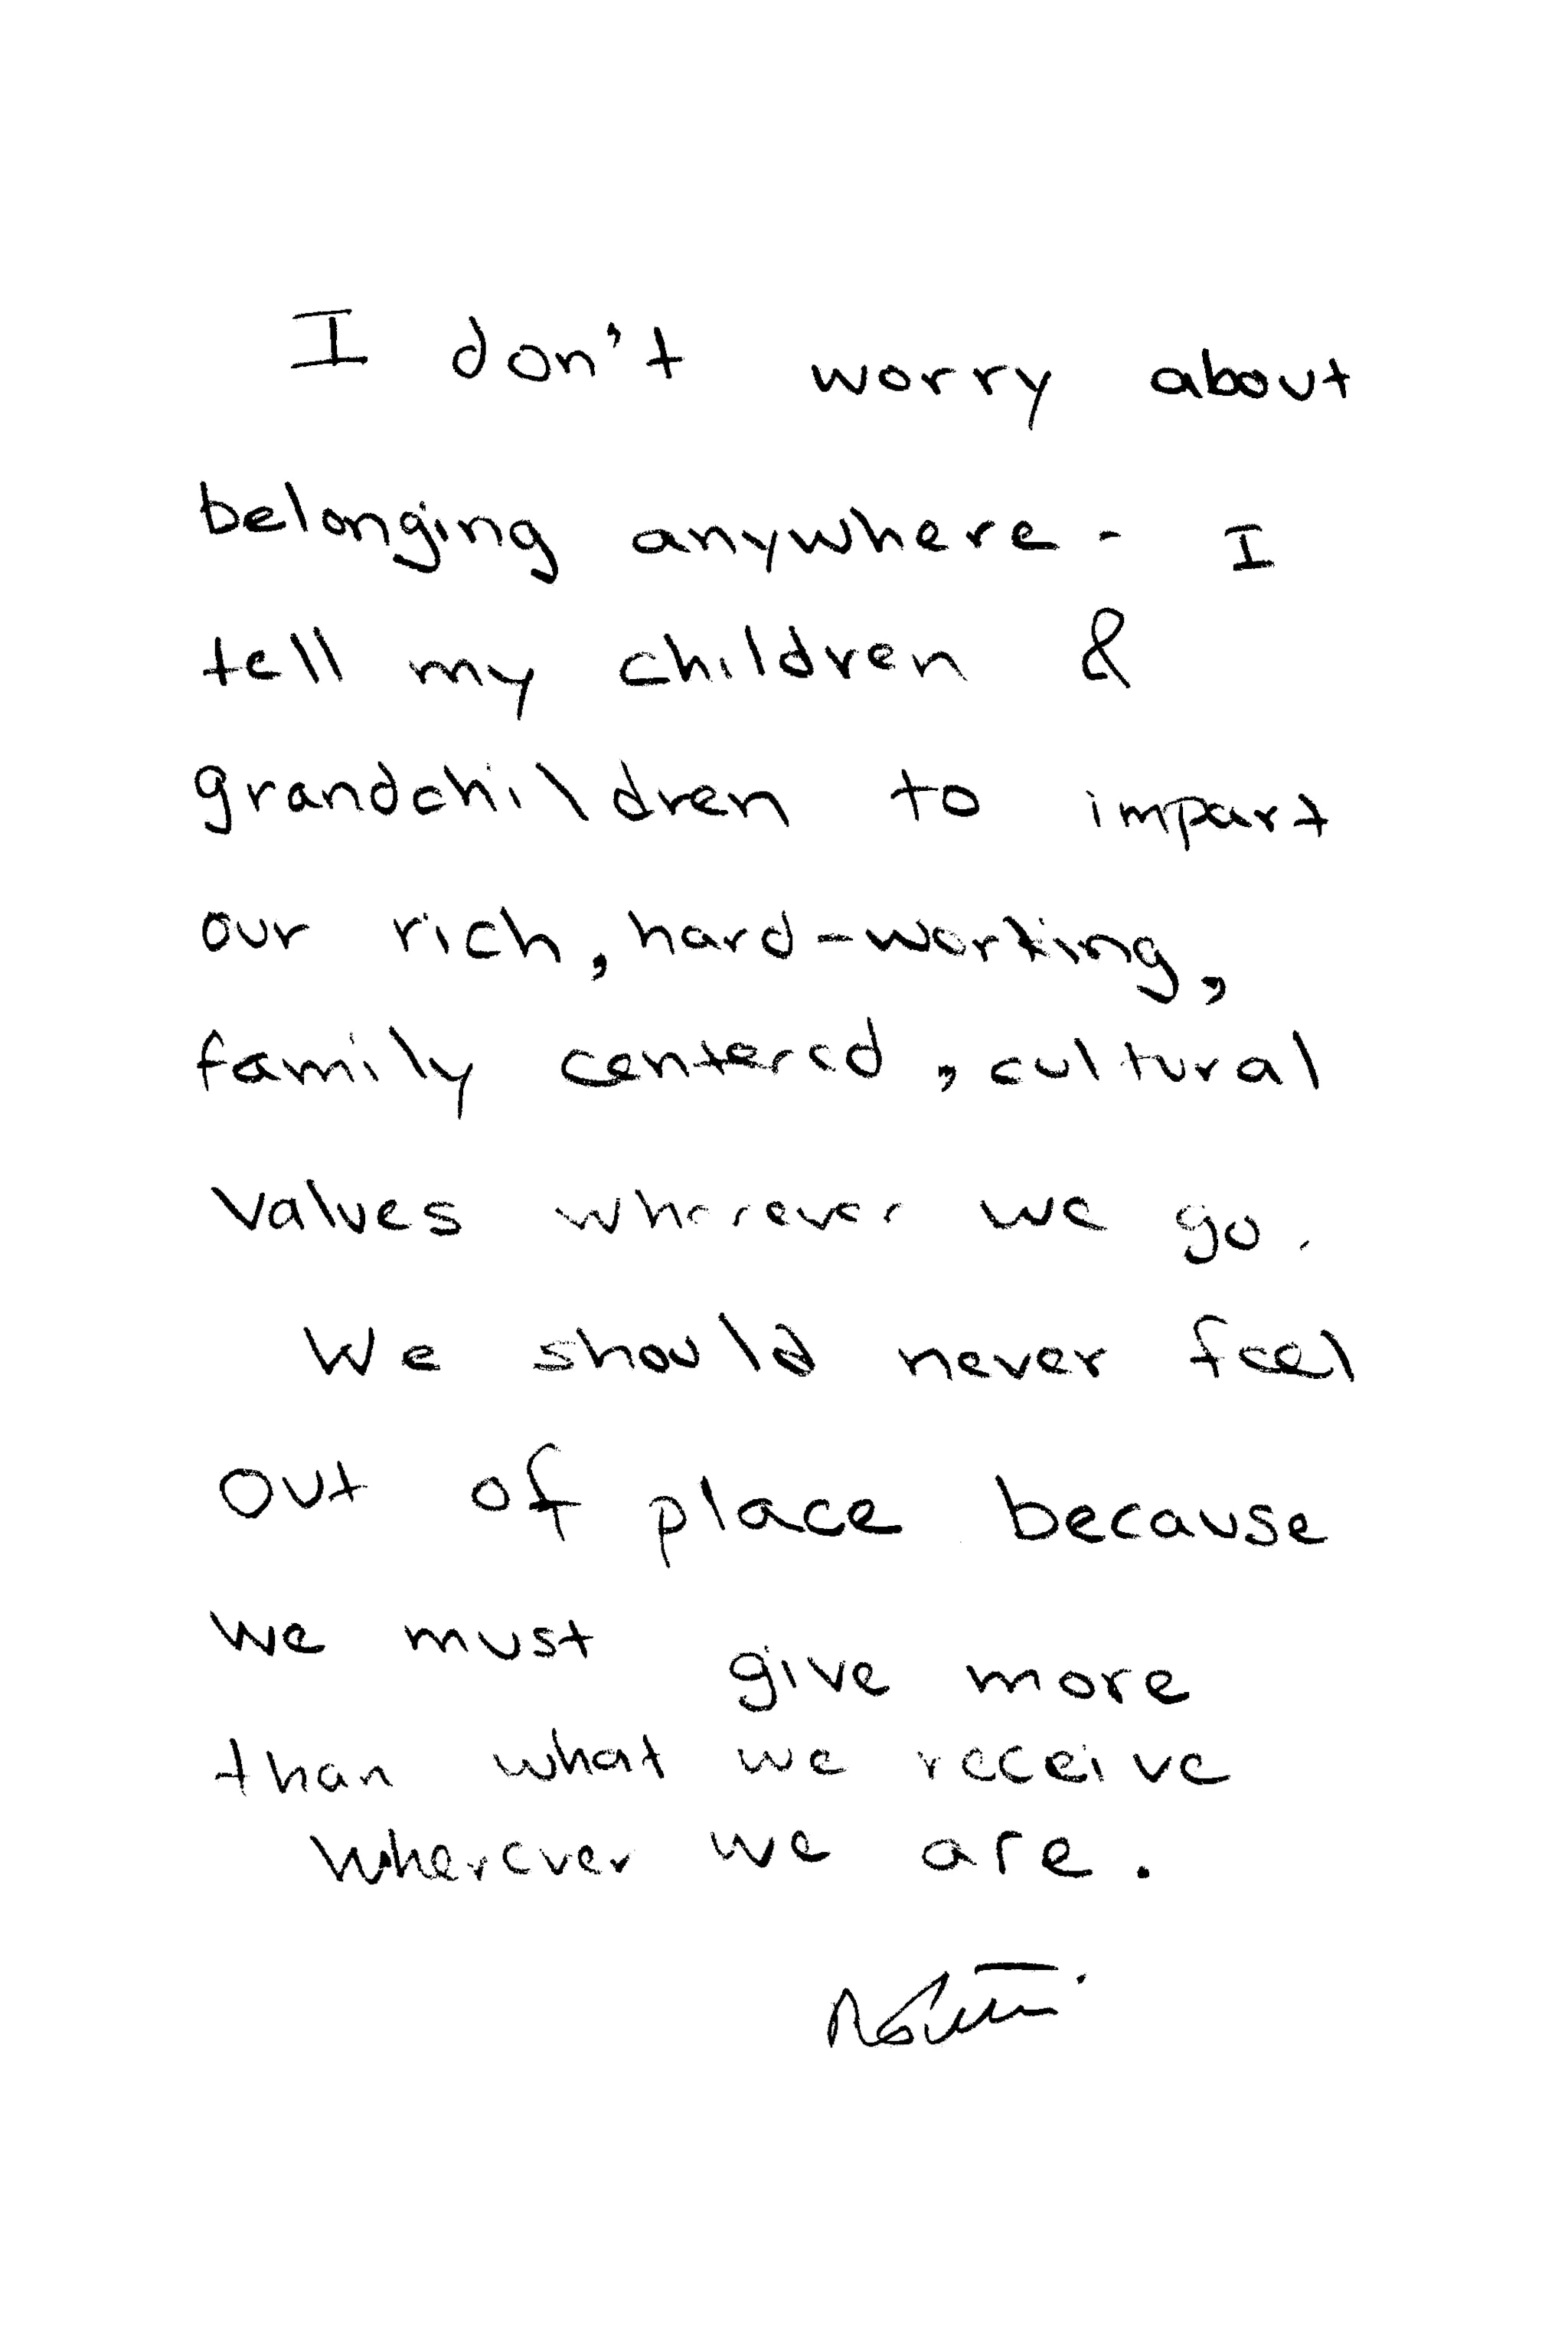 I don't worry about
belonging anywhere - I
tell my children &
grandchildren to impart
our rich, hard-working,
family centered, cultural
values wherever we go.
We should never feel
out of place because
we must give more
than what we receive
wherever we are.